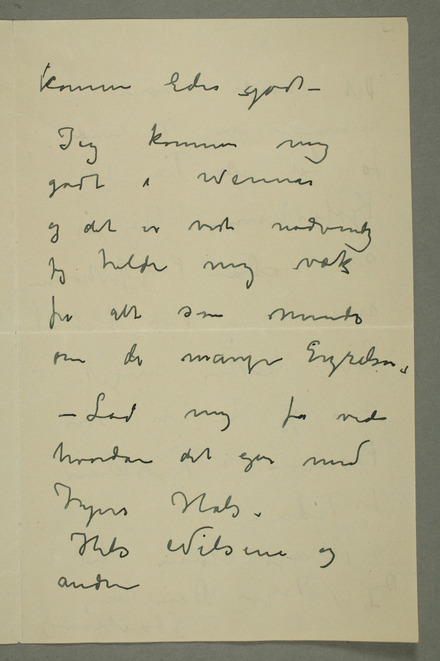 komme Eder godt –
Jeg kommer mig
godt i Wermas
og det er vist nødvendig
jeg holder mig væk
fra alt som minder
om de mange Ergrelser.
– Lad mig få vide
hvordan det gaar med
Hals.
Hils Nilsene og
andre